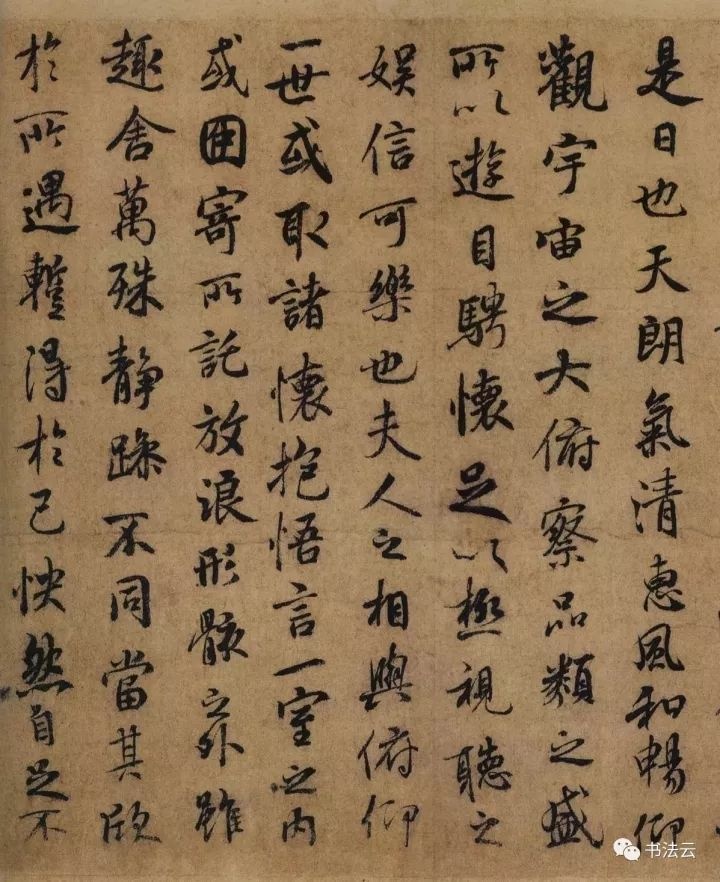 是日也天朗氣清惠風和暢仰
觀宇宙之大俯察品類之盛
所以遊目騁懷足以極視聽之
娛信可樂也夫人之相與俯仰
一世或取諸懷抱悟言一室之內
或因寄所託放浪形骸之外雖
趣舍萬殊靜躁不同當其欣
於所遇蹔得於己怏然自足不
书法云